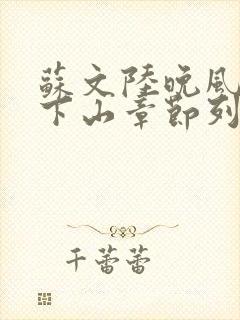 蘇文陸晚風
下山章節列
千蕾蕾